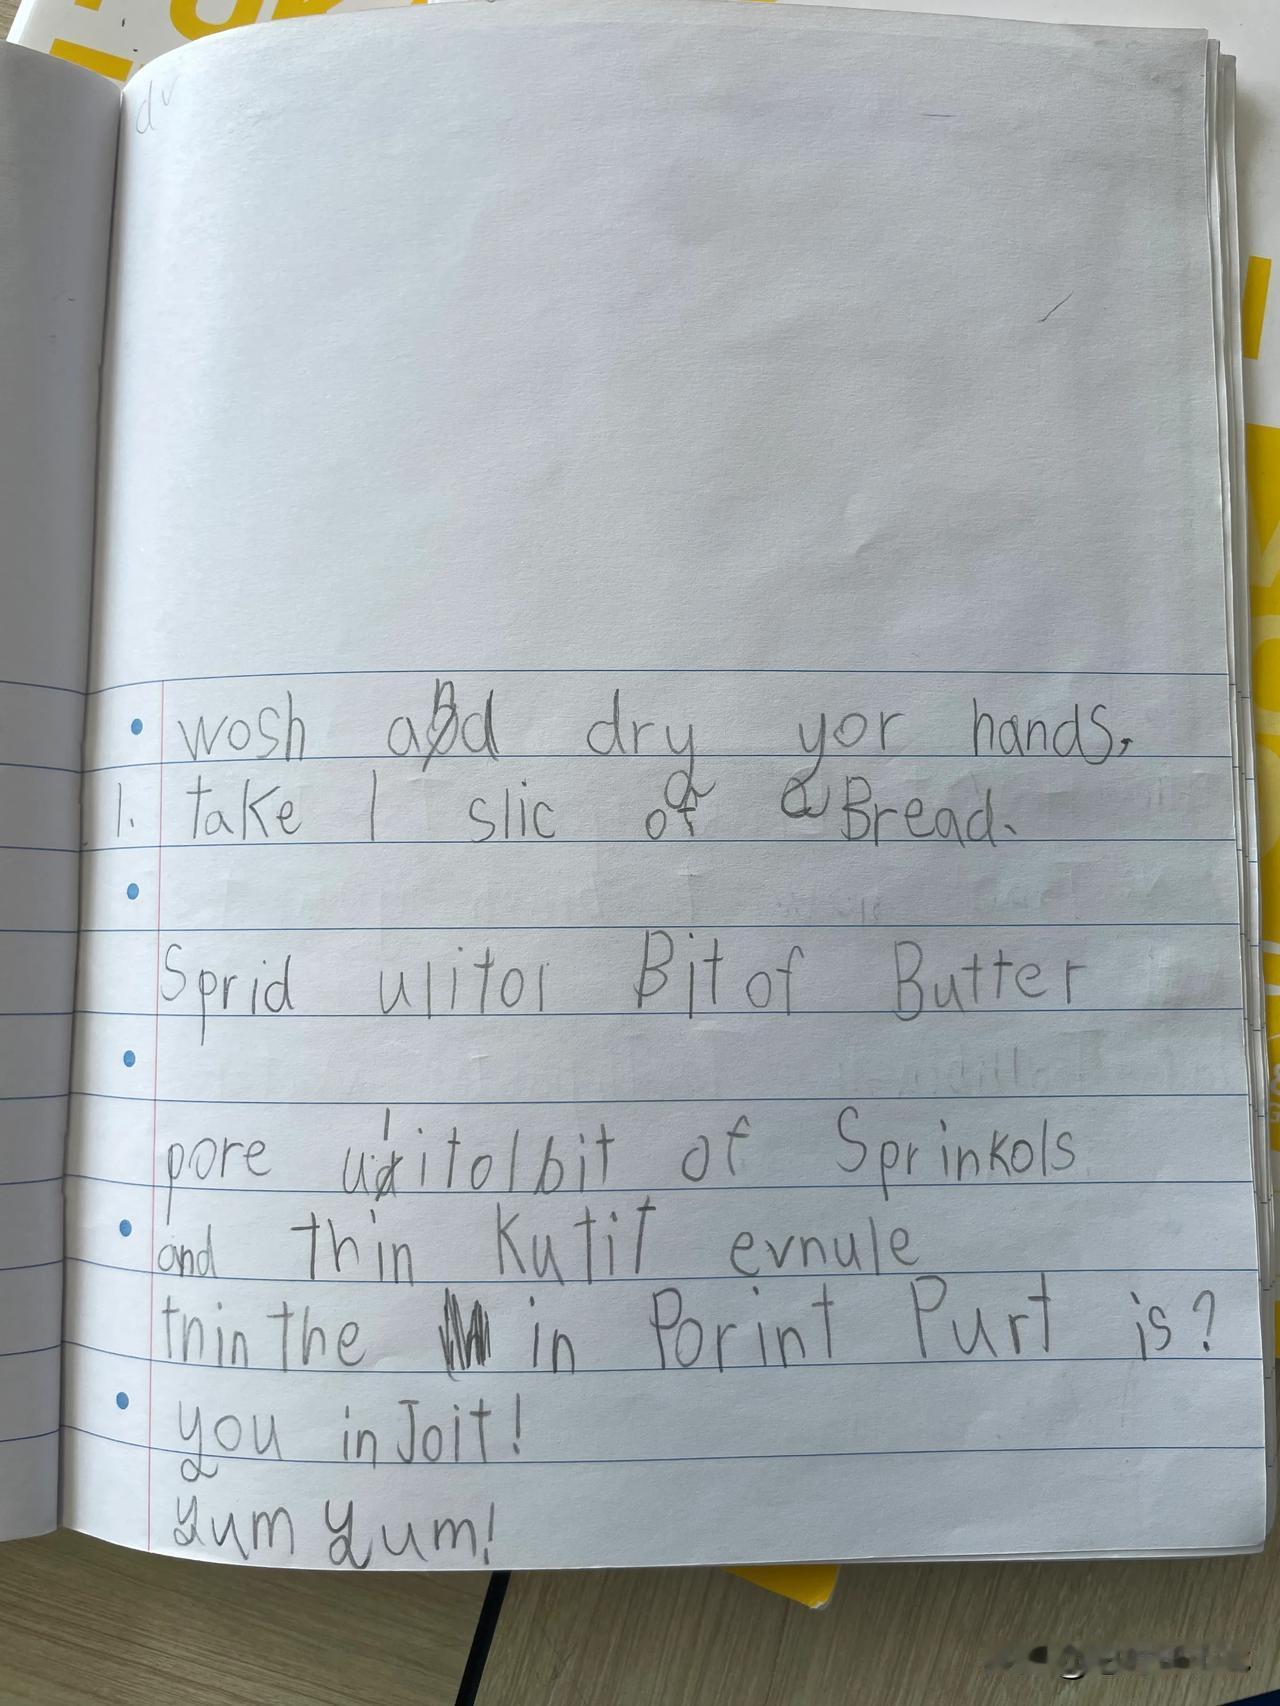 wosh and dry yor hands.
1. take 1 slic of a Bread.
Sprid ulitol Bit of Butter
pore ulitol bit of Sprinkols
and thin Kutit evnule
thin the in Porint Purt is?
you in Joit!
Yum Yum!